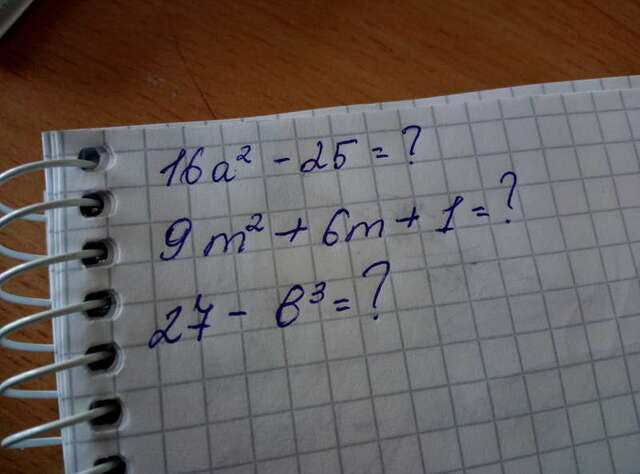 16a² - 25 = ?
9m² + 6m + 1 = ?
27 - b³ = ?